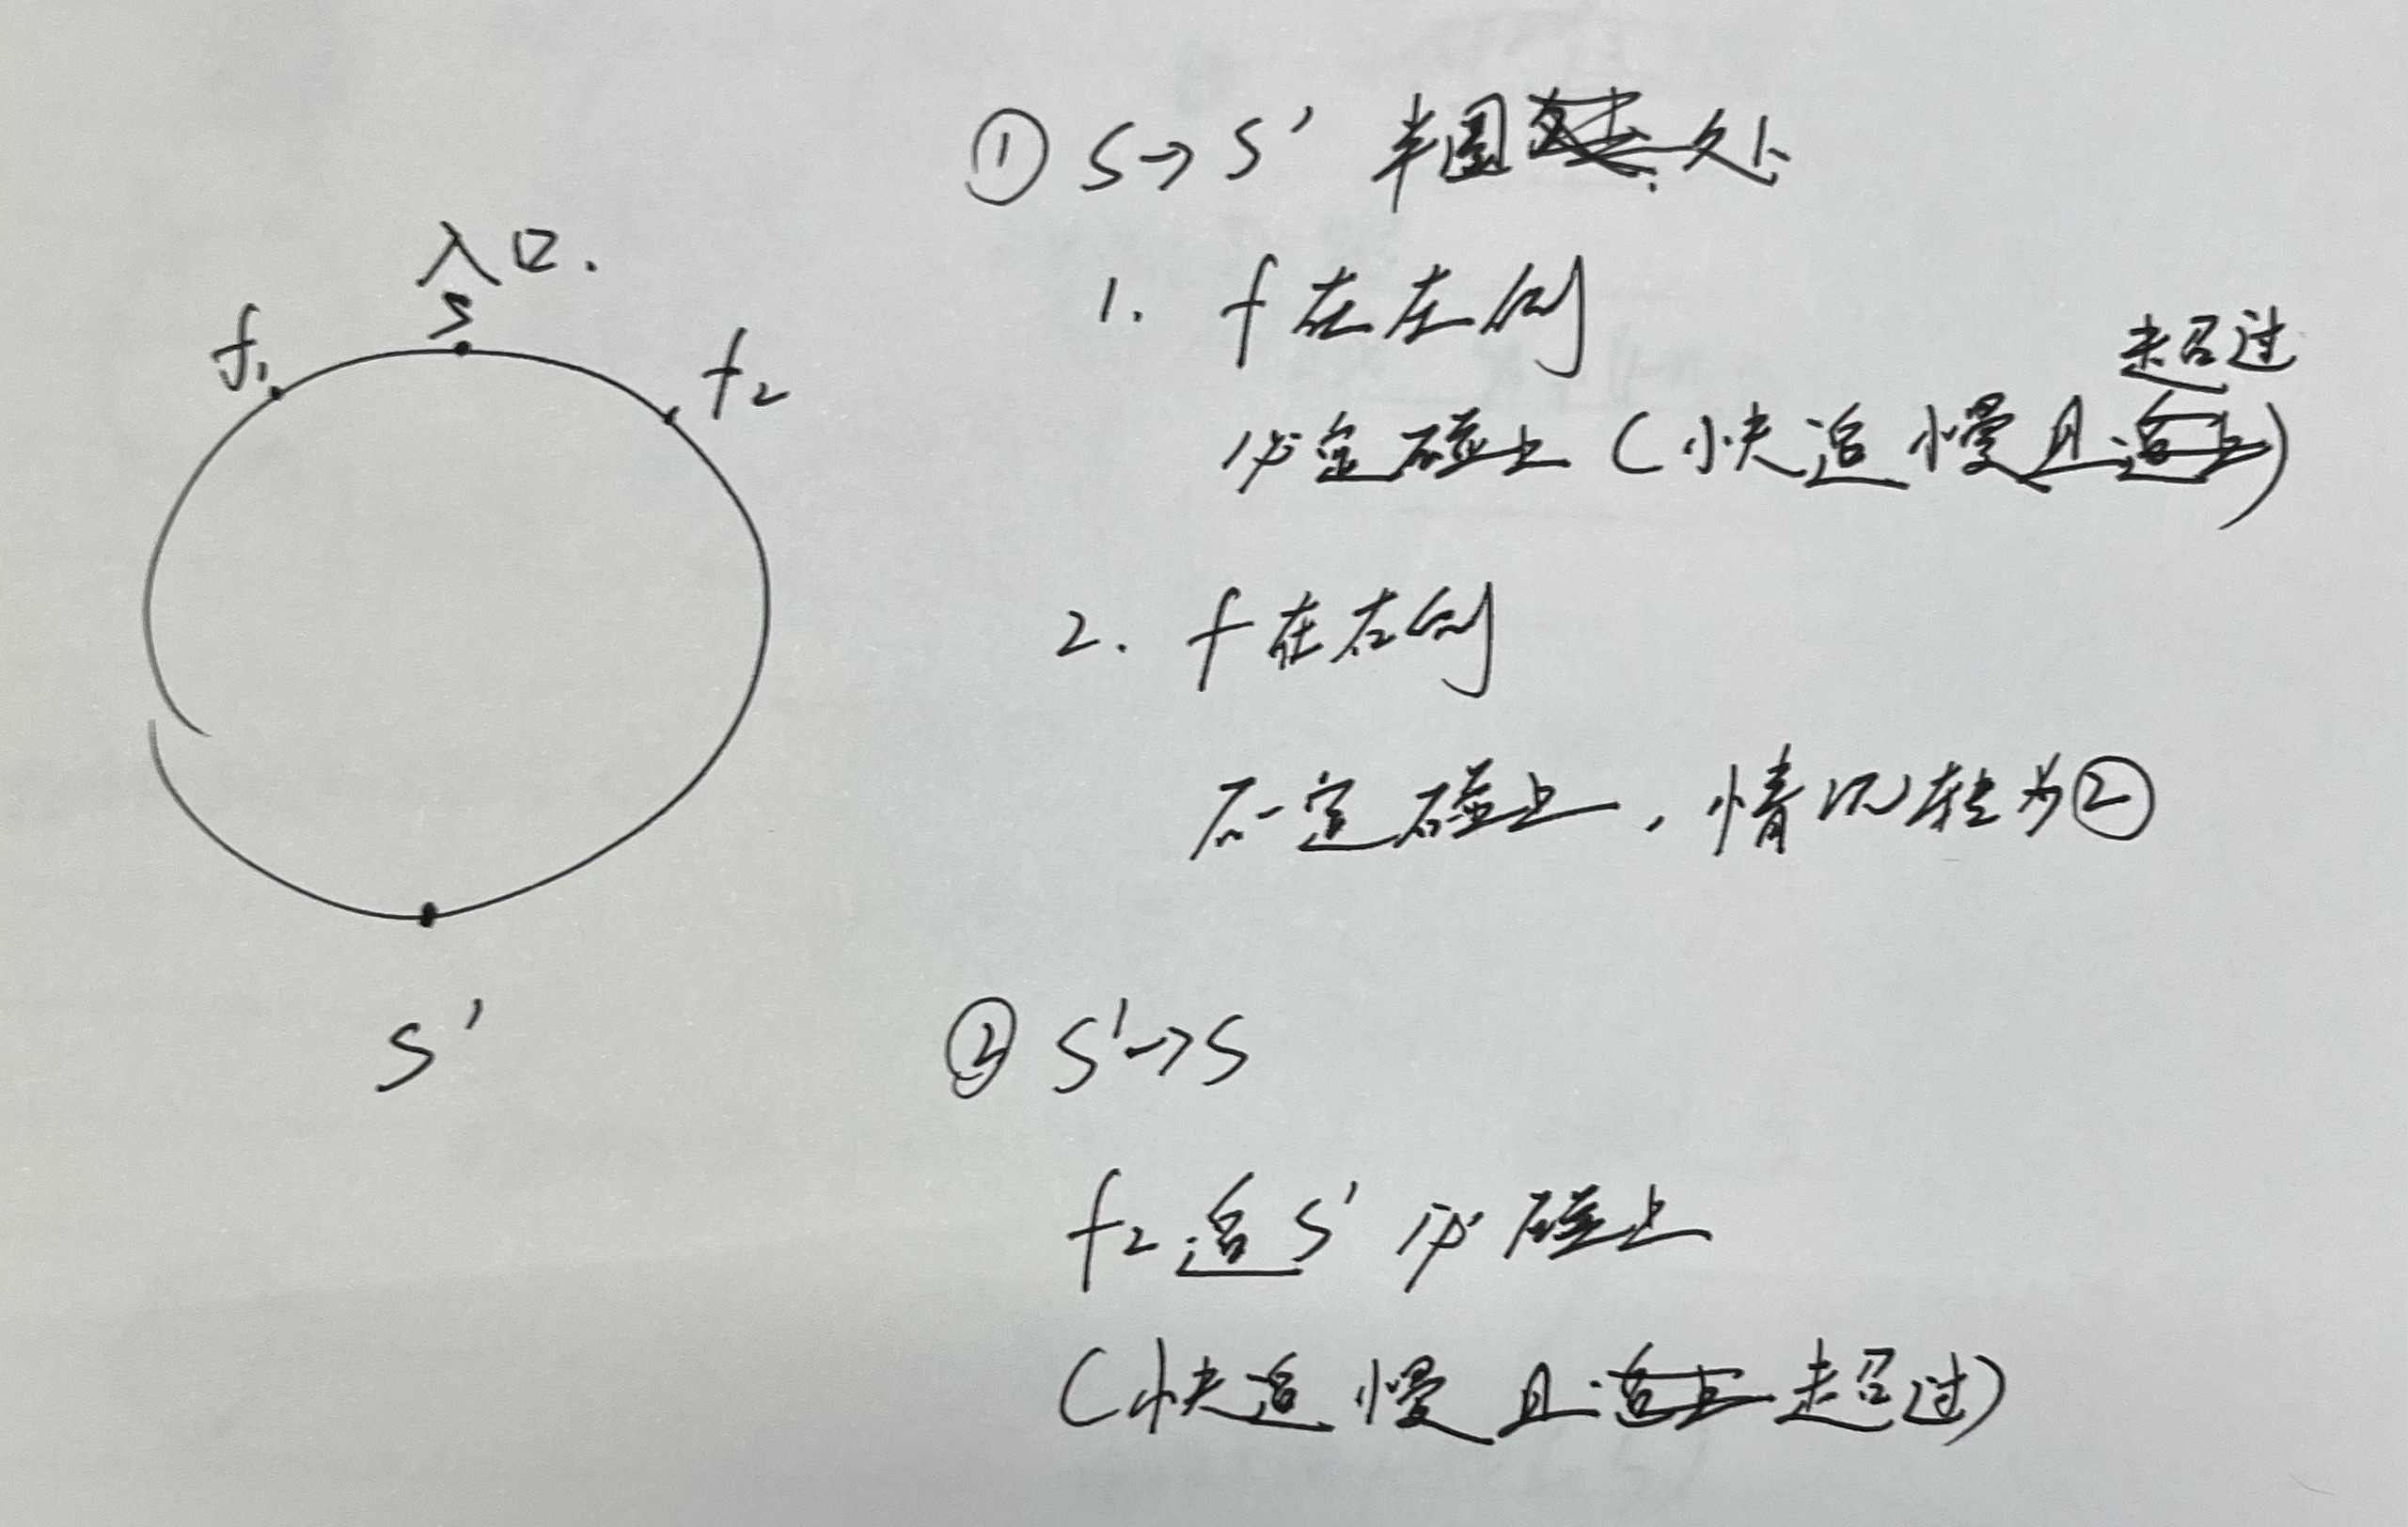 入口.
S
f₁
f₂
S'
① S→S' 半圆处
1. f在左侧
未超过
必定碰上(快追慢且追上)
2. f在右侧
不一定碰上,情况转为②
② S'→S
f₂追S' 必碰上
(快追慢且追上未超过)